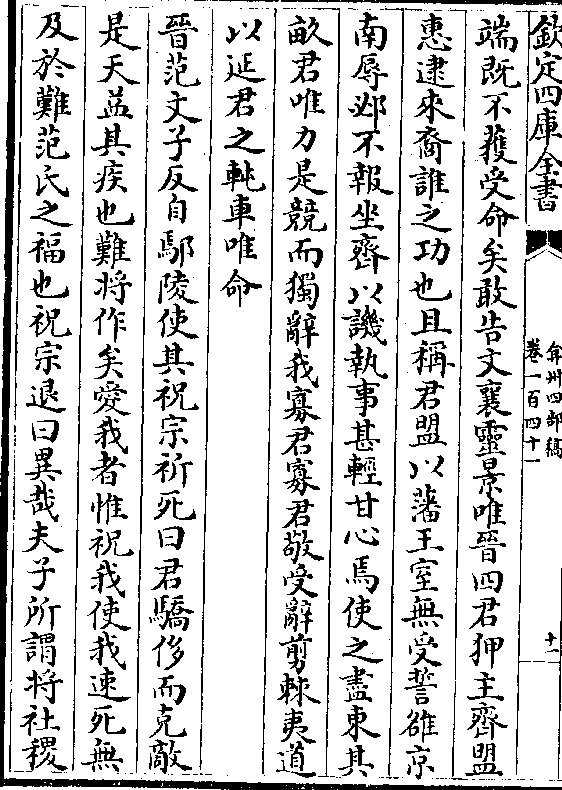 欽定四庫全書
弇州四部稿
卷一百四十一
十一
端既不獲受命矣敢告文襄靈景唯晉四君狎主齊盟
惠逮來裔誰之功也且稱君盟以藩王室無受誓雒京
南辱邲不報坐齊以譏執事甚輕甘心焉使之盡東其
畝君唯力是競而獨辭我寡君寡君敬受辭剪棘夷道
以延君之軘車唯命
晉范文子反自鄢陵使其祝宗祈死曰君驕侈而克敵
是天益其疾也難將作矣愛我者惟祝我使我速死無
及於難范氏之福也祝宗退曰異哉夫子所謂將社稷